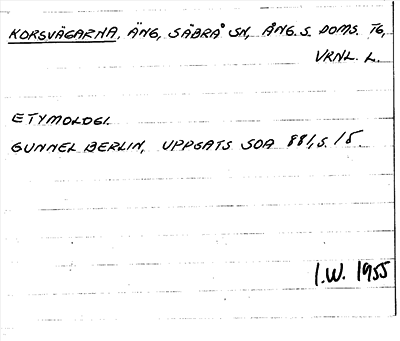 KORSVÄGARNA, ÄNG, SÄBRÅ SN, ÅNG. S. DOMS. TG,
VRNL. L.
ETYMOLOGI.
GUNNEL BERLIN, UPPGATS SOA 881, S. 15.
I.W. 1955